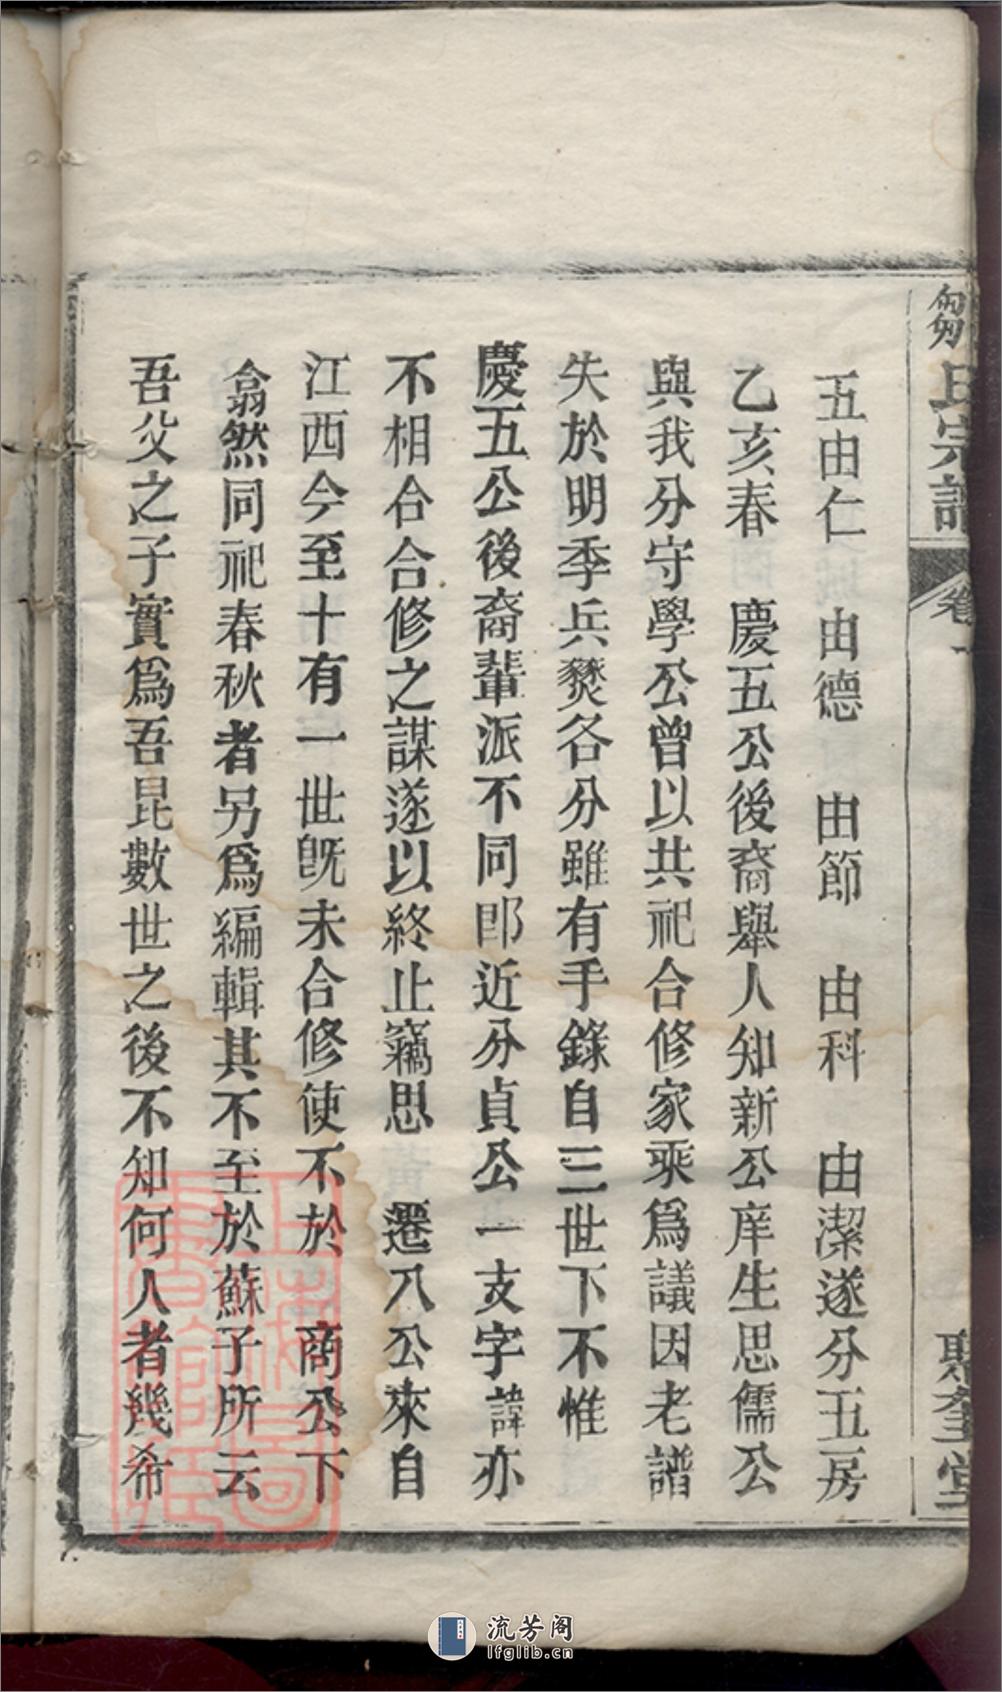 芻氏宗譜 卷一 聚奎堂
五由仁 由德 由節 由科 由潔遂分五房
乙亥春 慶五公後裔舉人知新公庠生思儒公
與我分守學公曾以共祀合修家乘爲議因老譜
失於明季兵燹各分雖有手錄自三世下不惟
慶五公後裔輩派不同即近分貞公一支字諱亦
不相合合修之謀遂以終止竊思 遷八公來自
江西今至十有一世既未合修使不於 商公下
翕然同祀春秋者另爲編輯其不至於蘇子所云
吾父之子實爲吾昆數世之後不知何人者幾希
上海圖書館藏
流芳阁
lfglib.cn